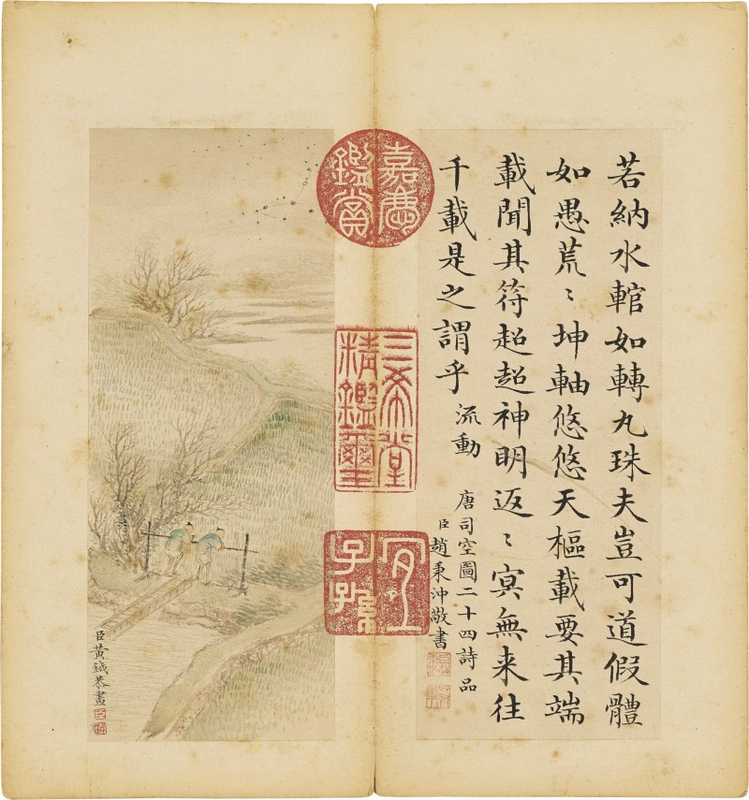 若納水輨如轉丸珠夫豈可道假體
如愚荒〻坤軸悠悠天樞載要其端
載聞其符超超神明返〻㝠無来往
千載是之謂乎 流動
唐司空圖二十四詩品
臣趙秉沖敬書
嘉慶鑑賞
三希堂精鑑璽
宜子孫
臣黃鉞恭畫